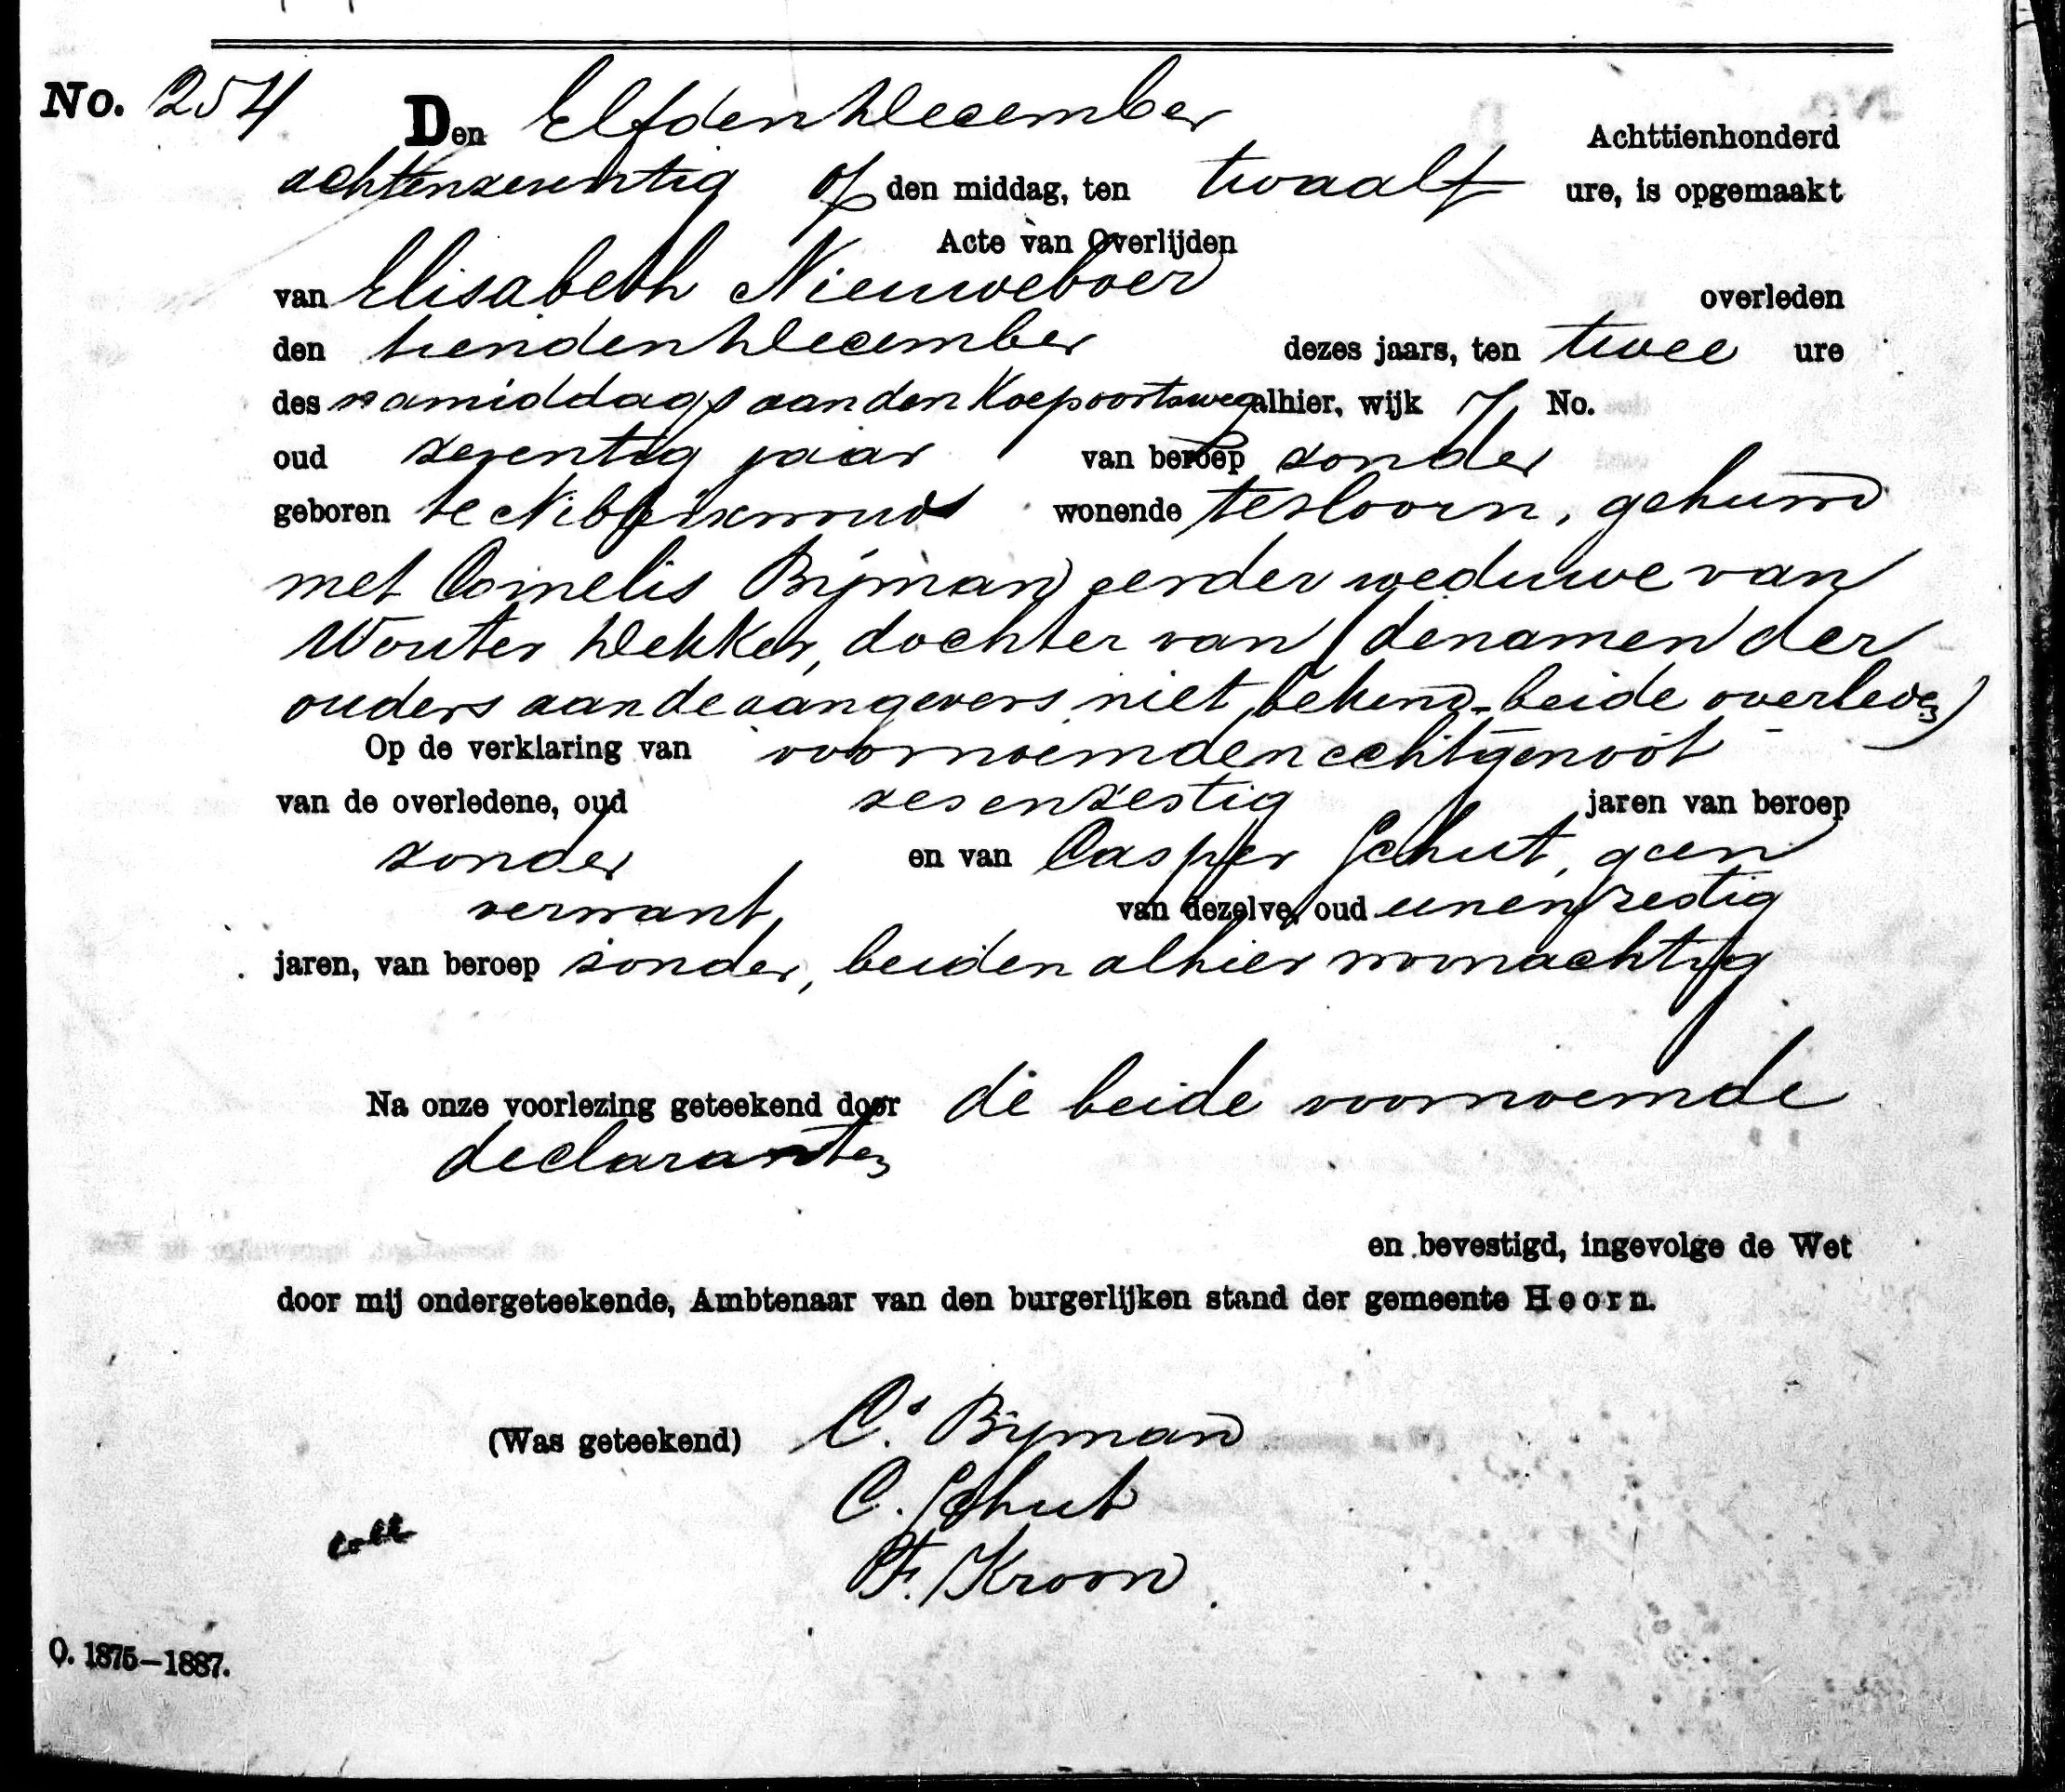 No. 254 Den Elfden December Achttienhonderd
achtenzeventig op den middag, ten twaalf ure, is opgemaakt
Acte van Overlijden
van Elisabeth Nieuweboer overleden
den tienden December dezes jaars, ten twee ure
des namiddags aan den Koepoortsweg alhier, wijk 7 No.
oud zeventig jaar van beroep zonder
geboren te Nibbixwoud wonende te Hoorn, gehuwd
met Cornelis Bijman eerder weduwe van
Wouter Dekker, dochter van (de namen der
ouders aan de aangevers niet bekend - beide overleden)
Op de verklaring van voornoemden echtgenoot
van de overledene, oud zesenzestig jaren van beroep
zonder en van Casper Schut, geen
verwant, van dezelve, oud eenenzestig
jaren, van beroep zonder, beiden alhier woonachtig
Na onze voorlezing geteekend door de beide voornoemde
declaranten
en bevestigd, ingevolge de Wet
door mij ondergeteekende, Ambtenaar van den burgerlijken stand der gemeente Hoorn.
(Was geteekend) Cs. Bijman
C. Schut
F. Kroon
coll
O. 1875–1887.